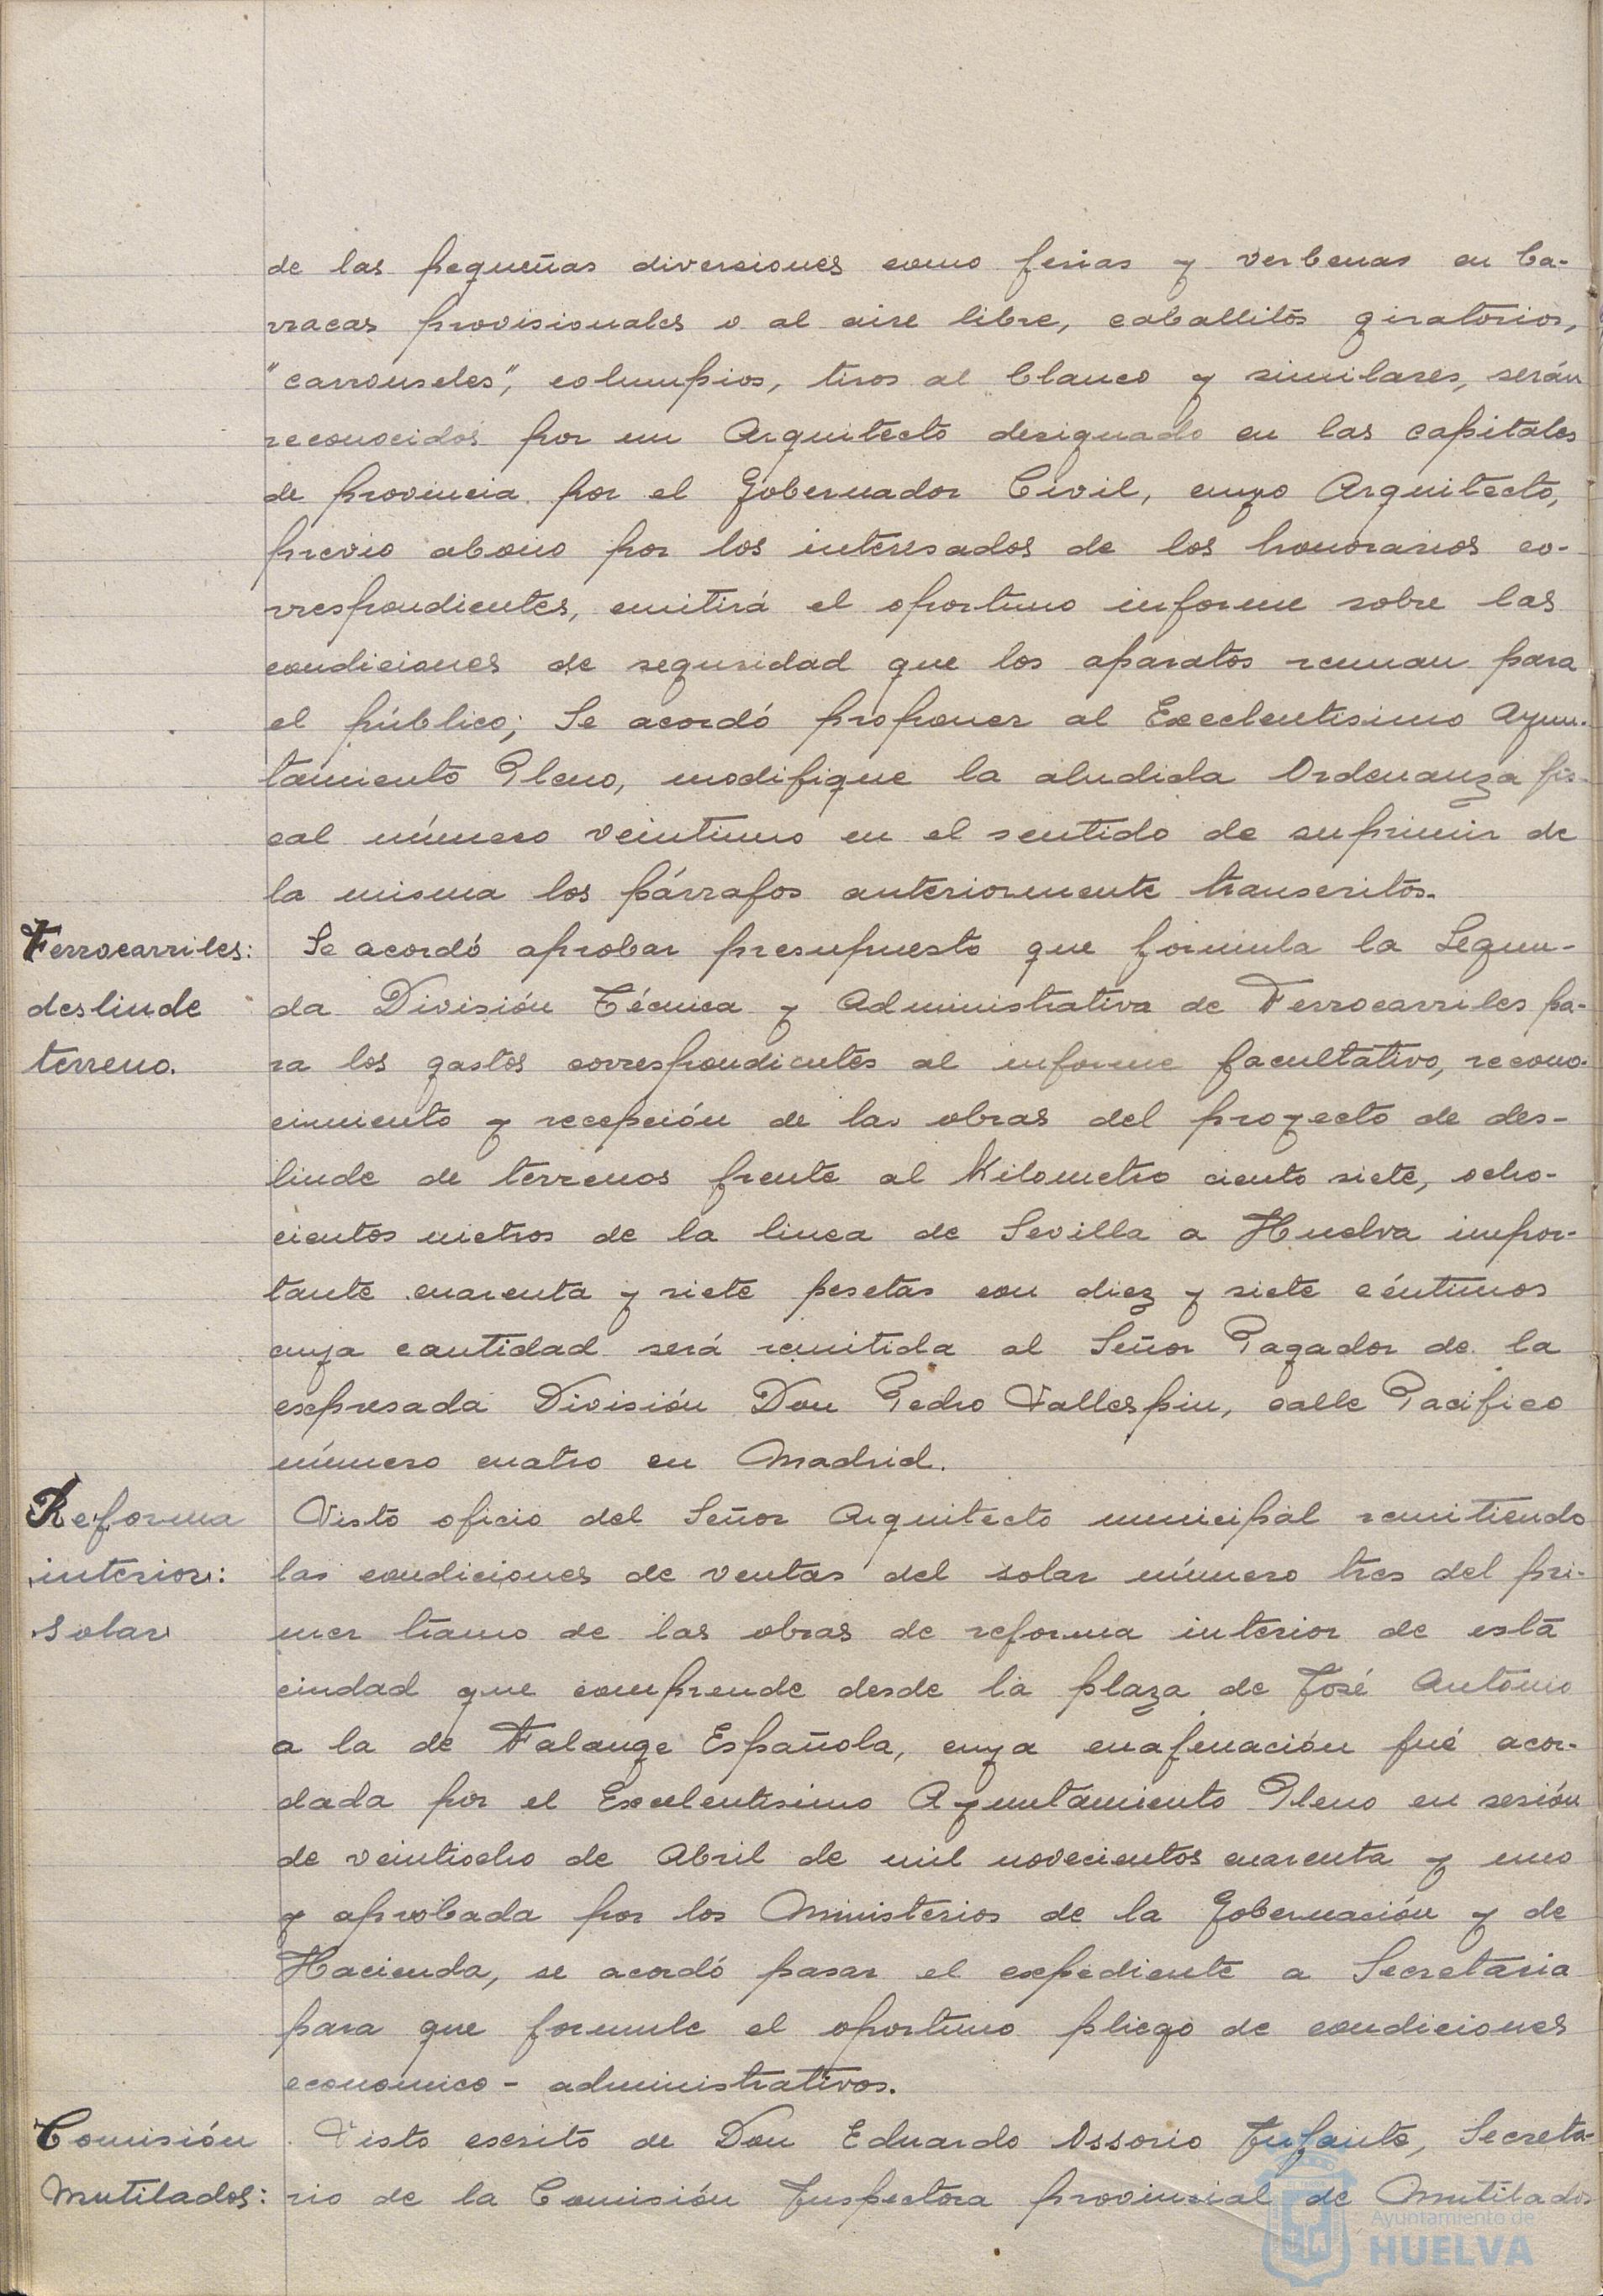 de las pequeñas diversiones como ferias y verbenas en ba-
rracas provisionales o al aire libre, caballitos giratorios,
"carrouseles", columpios, tiros al blanco y similares, serán
reconocidos por un Arquitecto designado en las capitales
de provincia por el Gobernador Civil, cuyo Arquitecto,
previo abono por los interesados de los honorarios co-
rrespondientes, emitirá el oportuno informe sobre las
condiciones de seguridad que los aparatos reunan para
el público; Se acordó proponer al Excelentisimo Ayun-
tamiento Pleno, modifique la aludida Ordenanza fis-
cal número veintiuno en el sentido de suprimir de
la misma los párrafos anteriormente transcritos.
Ferrocarriles: Se acordó aprobar presupuesto que formula la Segun-
deslinde da División Técnica y Administrativa de Ferrocarriles pa-
terreno. ra los gastos correspondientes al informe facultativo, recono-
cimiento y recepción de las obras del proyecto de des-
linde de terrenos frente al Kilometro ciento siete, ocho-
cientos metros de la linea de Sevilla a Huelva impor-
tante cuarenta y siete pesetas con diez y siete céntimos
cuya cantidad será remitida al Señor Pagador de la
expresada División Don Pedro Vallespin, calle Pacifico
número cuatro en Madrid.
Reforma Visto oficio del Señor Arquitecto municipal remitiendo
interior: las condiciones de ventas del solar número tres del pri-
solar mer tramo de las obras de reforma interior de esta
ciudad que comprende desde la plaza de José Antonio
a la de Falange Española, cuya enajenación fué acor-
dada por el Excelentisimo Ayuntamiento Pleno en sesión
de veintiocho de Abril de mil novecientos cuarenta y uno
y aprobada por los Ministerios de la Gobernación y de
Hacienda, se acordó pasar el expediente a Secretaria
para que formule el oportuno pliego de condiciones
economico - administrativos.
Comisión Visto escrito de Don Eduardo Ossorio Infante, Secreta-
Mutilados: rio de la Comisión Inspectora provincial de Mutilados
Ayuntamiento de
HUELVA